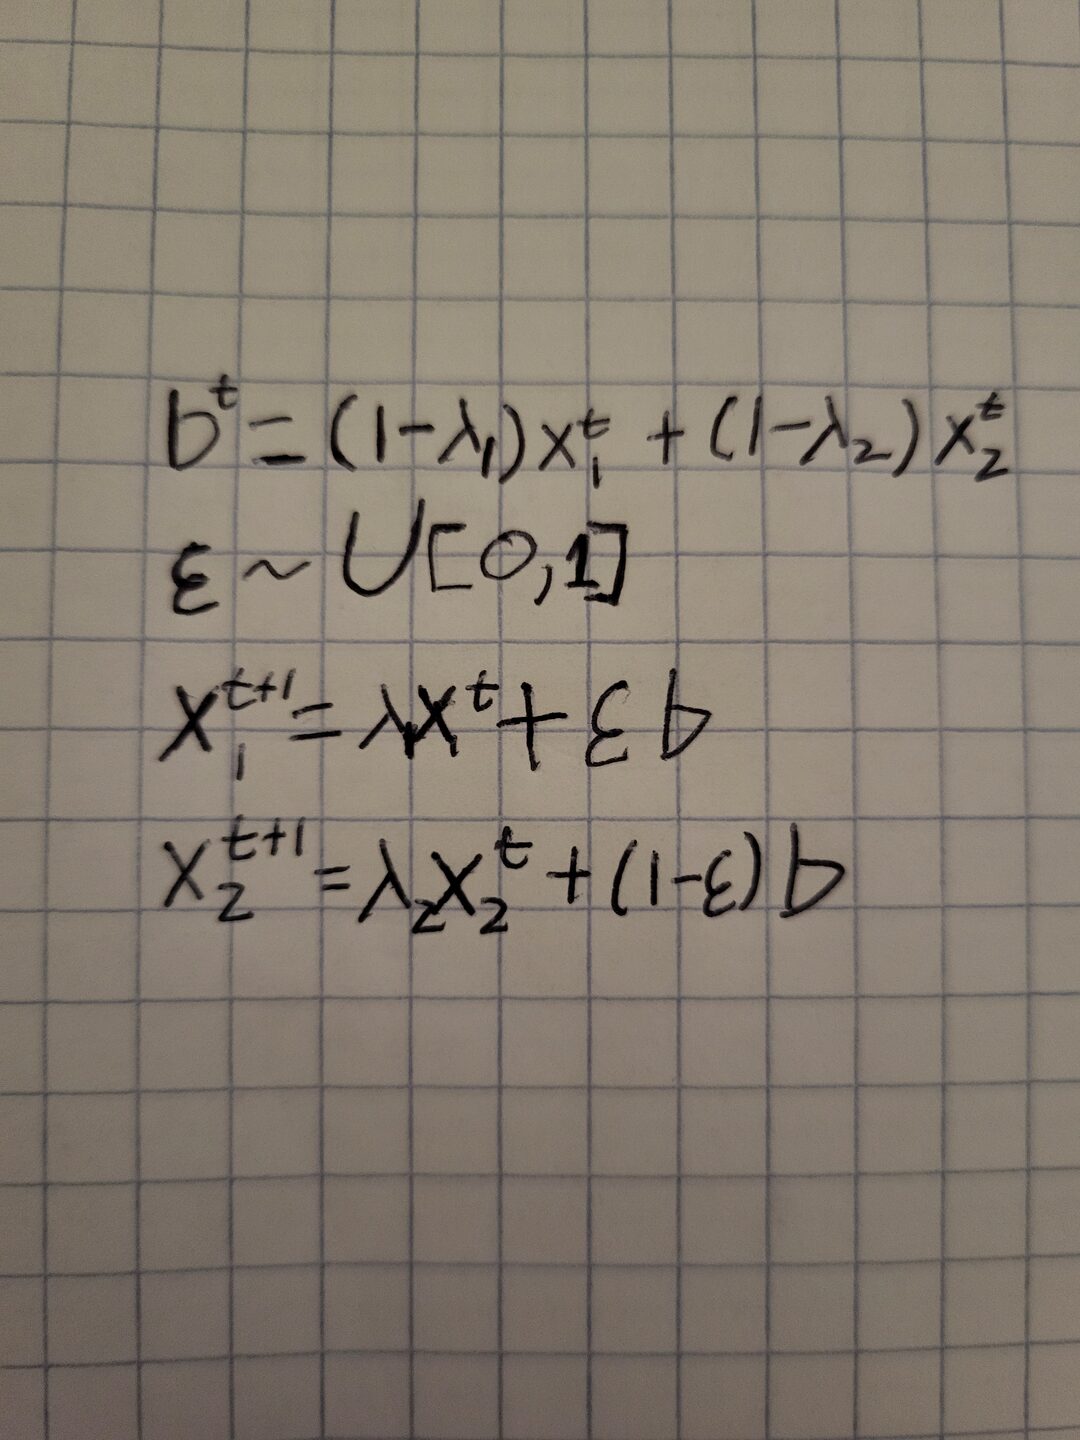 b^t = (1-λ₁)x₁^t + (1-λ₂)x₂^t
ε ~ U[0,1]
x₁^{t+1} = λ₁x₁^t + εb
x₂^{t+1} = λ₂x₂^t + (1-ε)b